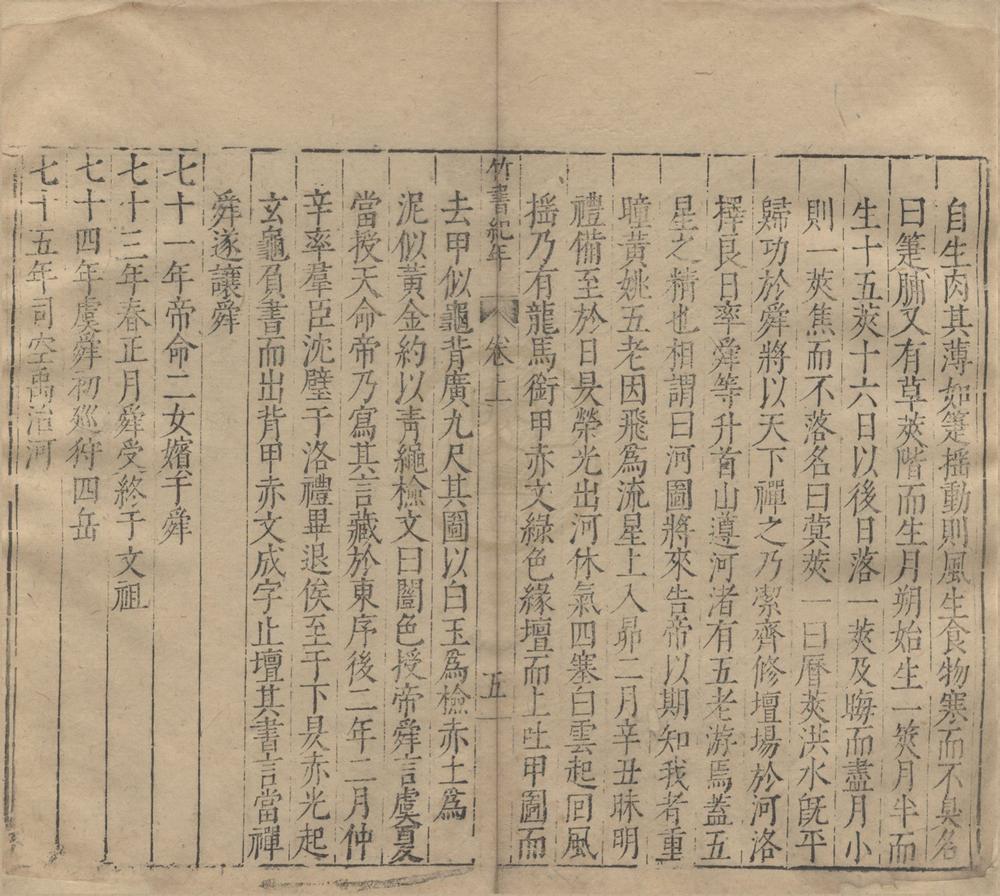 自生肉其薄如箑摇動則風生食物寒而不臭名
曰箑脯又有草莢階而生月朔始生一筴月半而
生十五莢十六日以後日落一莢及晦而盡月小
則一莢焦而不落名曰蓂莢一曰曆莢洪水旣平
歸功於舜將以天下禪之乃潔齊修壇場於河洛
擇良日率舜等升首山遵河渚有五老游焉蓋五
星之精也相謂曰河圖將來告帝以期知我者重
瞳黃姚五老因飛爲流星上入昴二月辛丑昧明
禮備至於日昃榮光出河休氣四塞白雲起囘風
摇乃有龍馬銜甲赤文綠色緣壇而上吐甲圖而
竹書紀年 卷上 五
去甲似龜背廣九尺其圖以白玉爲檢赤土爲
泥似黃金約以靑繩檢文曰闓色授帝舜言虞夏
當授天命帝乃寫其言藏於東序後二年二月仲
辛率羣臣沈璧于洛禮畢退俟至于下昃赤光起
玄龜負書而出背甲赤文成字止壇其書言當禪
舜遂讓舜
七十一年帝命二女嬪于舜
七十三年春正月舜受終于文祖
七十四年虞舜初廵狩四岳
七十五年司空禹治河